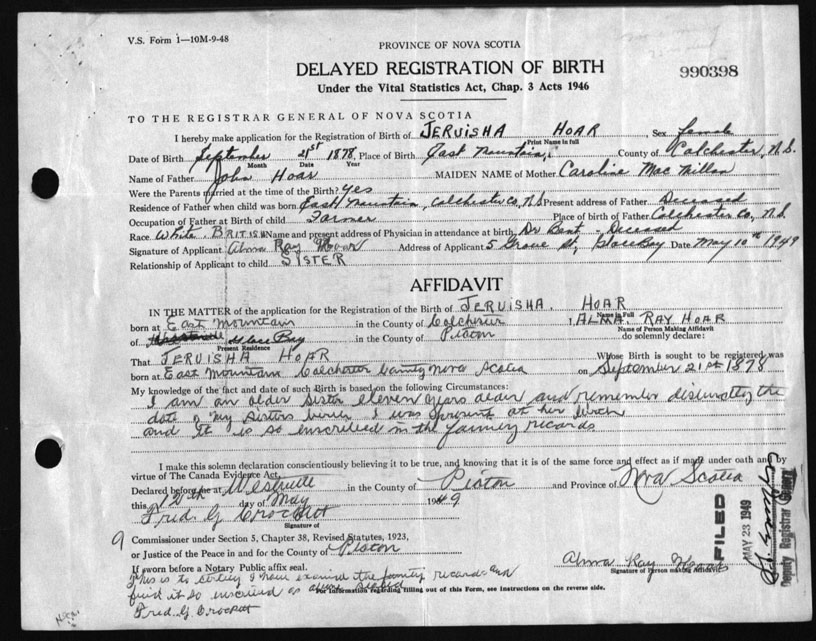 V.S. Form 1—10M-9-48
PROVINCE OF NOVA SCOTIA
DELAYED REGISTRATION OF BIRTH
990398
Under the Vital Statistics Act, Chap. 3 Acts 1946
TO THE REGISTRAR GENERAL OF NOVA SCOTIA
I hereby make application for the Registration of Birth of JERUISHA HOAR Sex female
Print Name in full
Date of Birth September 21st 1878, Place of Birth East Mountain, County of Colchester, N.S.
Month Date Year
Name of Father John Hoar MAIDEN NAME of Mother Caroline MacMillan
Were the Parents married at the time of the Birth? yes
Residence of Father when child was born East Mountain, Colchester Co, N.S Present address of Father Deceased
Occupation of Father at Birth of child Farmer Place of birth of Father Colchester Co, N.S.
Race White BRITISH Name and present address of Physician in attendance at birth Dr Bent - Deceased
Signature of Applicant Alma Ray Hoar Address of Applicant 5 Grove St, Glace Bay Date May 10th 1949
Relationship of Applicant to child SISTER
AFFIDAVIT
IN THE MATTER of the application for the Registration of Birth of JERUISHA HOAR
Name in Full
born at East Mountain in the County of Colchester I, ALMA RAY HOAR
Name of Person Making Affidavit
of Glace Bay in the County of Pictou do solemnly declare:
Present Residence
That JERUISHA HOAR Whose Birth is sought to be registered was
born at East Mountain Colchester County Nova Scotia on September 21st 1878
My knowledge of the fact and date of such Birth is based on the following Circumstances:
I am an older sister eleven years older and remember distinctly the
date of my sisters birth I was present at her birth
and it is so inscribed in the family records
I make this solemn declaration conscientiously believing it to be true, and knowing that it is of the same force and effect as if made under oath and by
virtue of The Canada Evidence Act.
Declared before me at Westville in the County of Pictou and Province of Nova Scotia
this 12th day of May 1949
Fred. G Crockett
Signature of
9 Commissioner under Section 5, Chapter 38, Revised Statutes, 1923,
or Justice of the Peace in and for the County of Pictou
If sworn before a Notary Public affix seal.
Alma Ray Hoar
Signature of Person making Affidavit
This is to certify I have examined the family records and
find it so inscribed as above stated
For information regarding filling out of this Form, see instructions on the reverse side.
Fred. G. Crockett
FILED
MAY 23 1949
Deputy Registrar General